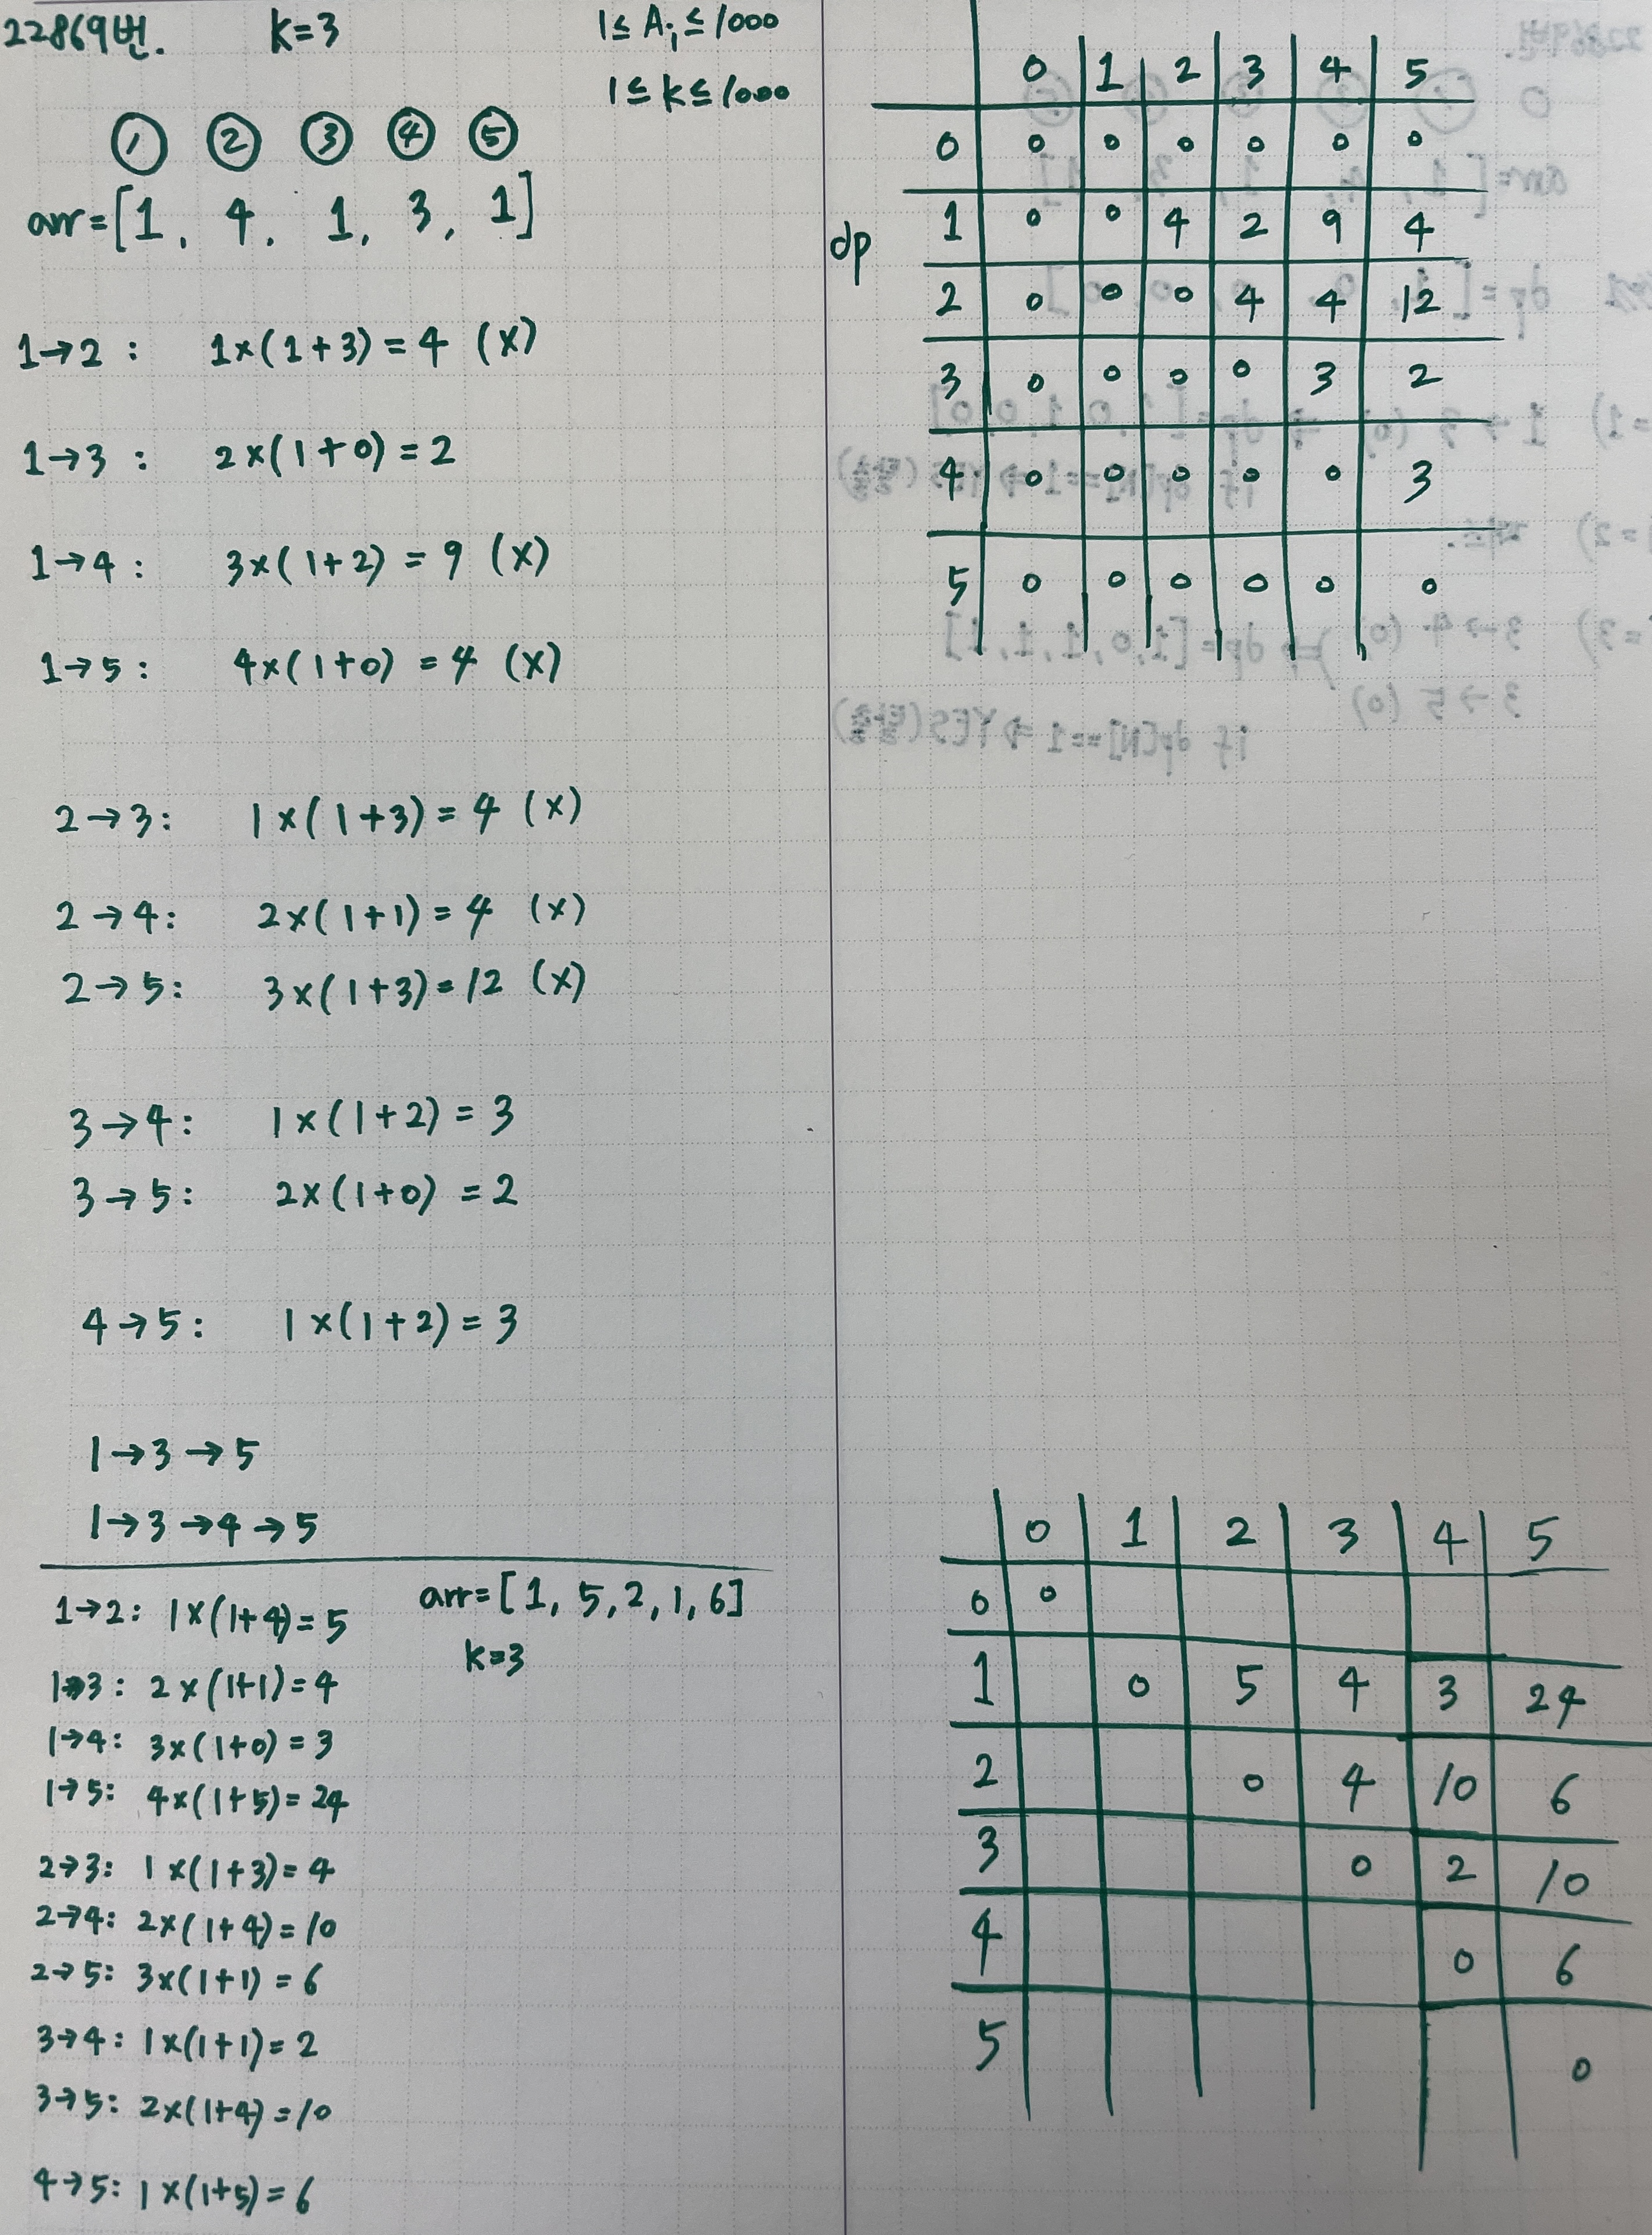 22869번. k=3 1≤Ai≤1000
1≤k≤1000
① ② ③ ④ ⑤
arr=[1, 4, 1, 3, 1]
1→2 : 1×(1+3)=4 (x)
1→3 : 2×(1+0)=2
1→4 : 3×(1+2)=9 (x)
1→5 : 4×(1+0)=4 (x)
2→3: 1×(1+3)=4 (x)
2→4: 2×(1+1)=4 (x)
2→5: 3×(1+3)=12 (x)
3→4: 1×(1+2)=3
3→5: 2×(1+0)=2
4→5: 1×(1+2)=3
1→3→5
1→3→4→5
1→2: 1×(1+4)=5
1→3: 2×(1+1)=4
1→4: 3×(1+0)=3
1→5: 4×(1+5)=24
2→3: 1×(1+3)=4
2→4: 2×(1+4)=10
2→5: 3×(1+1)=6
3→4: 1×(1+1)=2
3→5: 2×(1+4)=10
4→5: 1×(1+5)=6
arr=[1, 5, 2, 1, 6]
k=3
dp
0 1 2 3 4 5
0 0 0 0 0 0 0
1 0 0 4 2 9 4
2 0 0 0 4 4 12
3 0 0 0 0 3 2
4 0 0 0 0 0 3
5 0 0 0 0 0 0
0 1 2 3 4 5
0 0
1 0 5 4 3 24
2 0 4 10 6
3 0 2 10
4 0 6
5 0